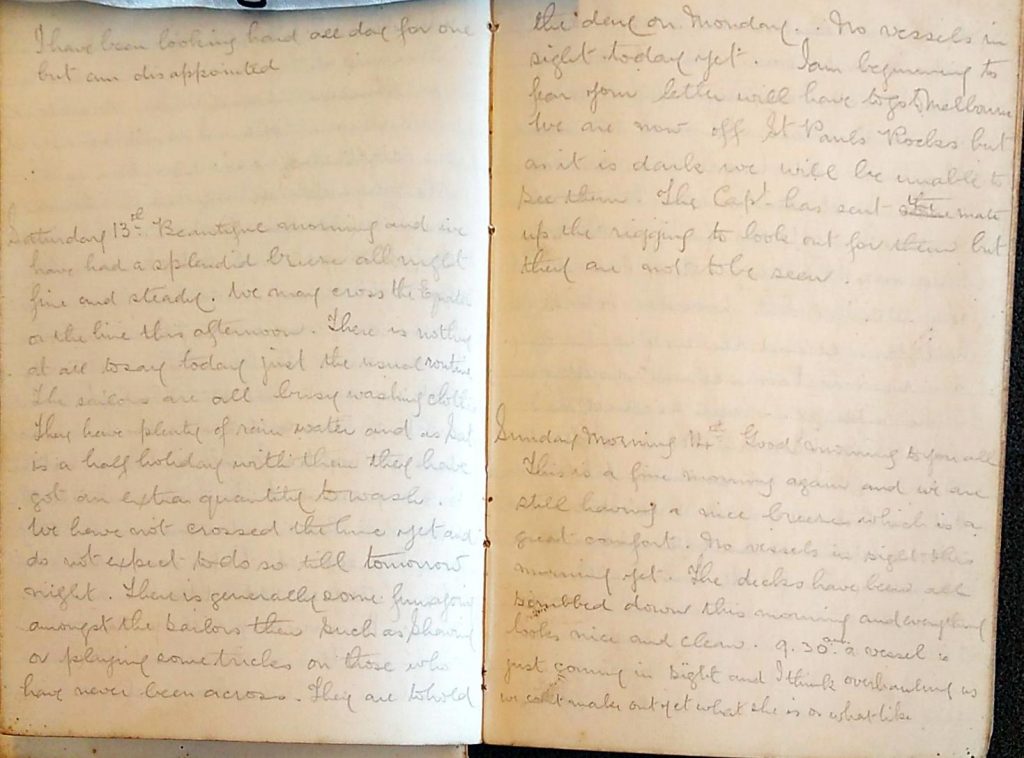 I have been looking hard all day for one
but am disappointed
Saturday 13th Beautiful morning and we
have had a splendid breeze all night
fine and steady. We may cross the Equator
or the line this afternoon. There is nothing
at all to say today just the usual routine
The sailors are all busy washing clothes
They have plenty of rain water and as Sat
is a half holiday with them they have
got an extra quantity to wash.
We have not crossed the line yet and
do not expect to do so till tomorrow
night. There is generally some fun going
amongst the sailors then such as Shaving
or playing some tricks on those who
have never been across. They are to hold
the day on Monday. No vessels in
sight today yet. I am beginning to
fear your letter will have to go to Melbourne
We are now off St Pauls Rocks but
as it is dark we will be unable to
see them. The Capt has sent the mate
up the rigging to look out for them but
they are not to be seen.
Sunday Morning 14st Good morning to you all
This is a fine morning again and we are
still having a nice breeze which is a
great comfort. No vessels in sight this
morning yet. The decks have been all
scrubbed down this morning and everything
looks nice and clean. 9.30am a vessel is
just coming in sight and I think overhauling us
we cant make out yet what she is or what like